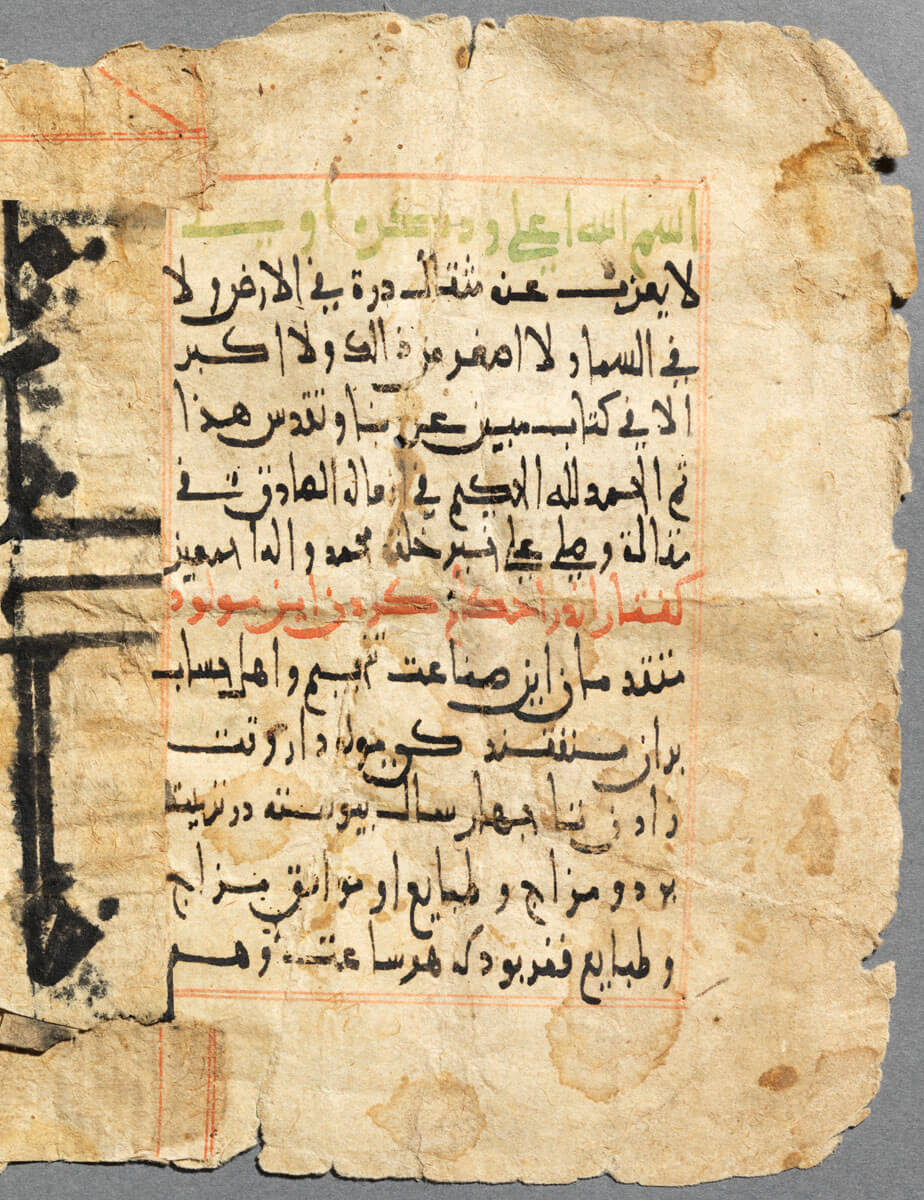 اسم الله اعلى و ذكره اولى
لا يعزب عن مثقال درة في الارض ولا
في السما ولا اصغر من ذالك ولا اكبر
الا في كتاب مبين عز وتقدس هذا
ثم الحمد لله الحكيم في الصادق في
مقالة وصلى على خير خلقه محمد واله اجمعين
كفتار اندر احكام كردن اين مولود
متقدمان اين صناعت تنجيم واهل حساب
بران متفقند كي مولد دار وقت
زادن تا جهار سال بيوسته در تربيت
بود و مزاج و طبايع او موافق مزاج
و طبايع قمر بود كه هر ساعت وهم